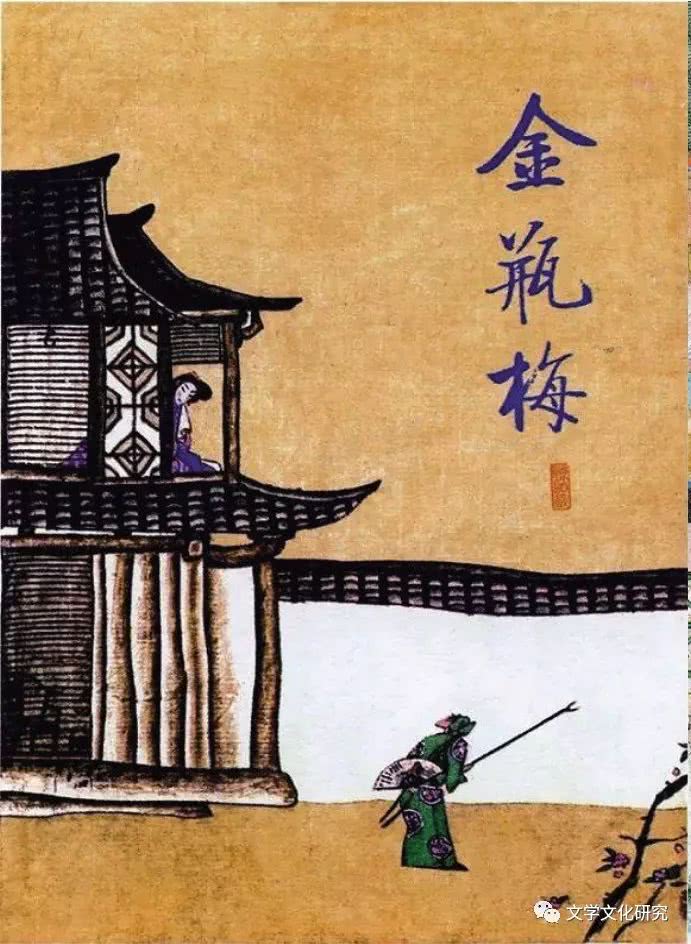 金瓶梅
文学文化研究